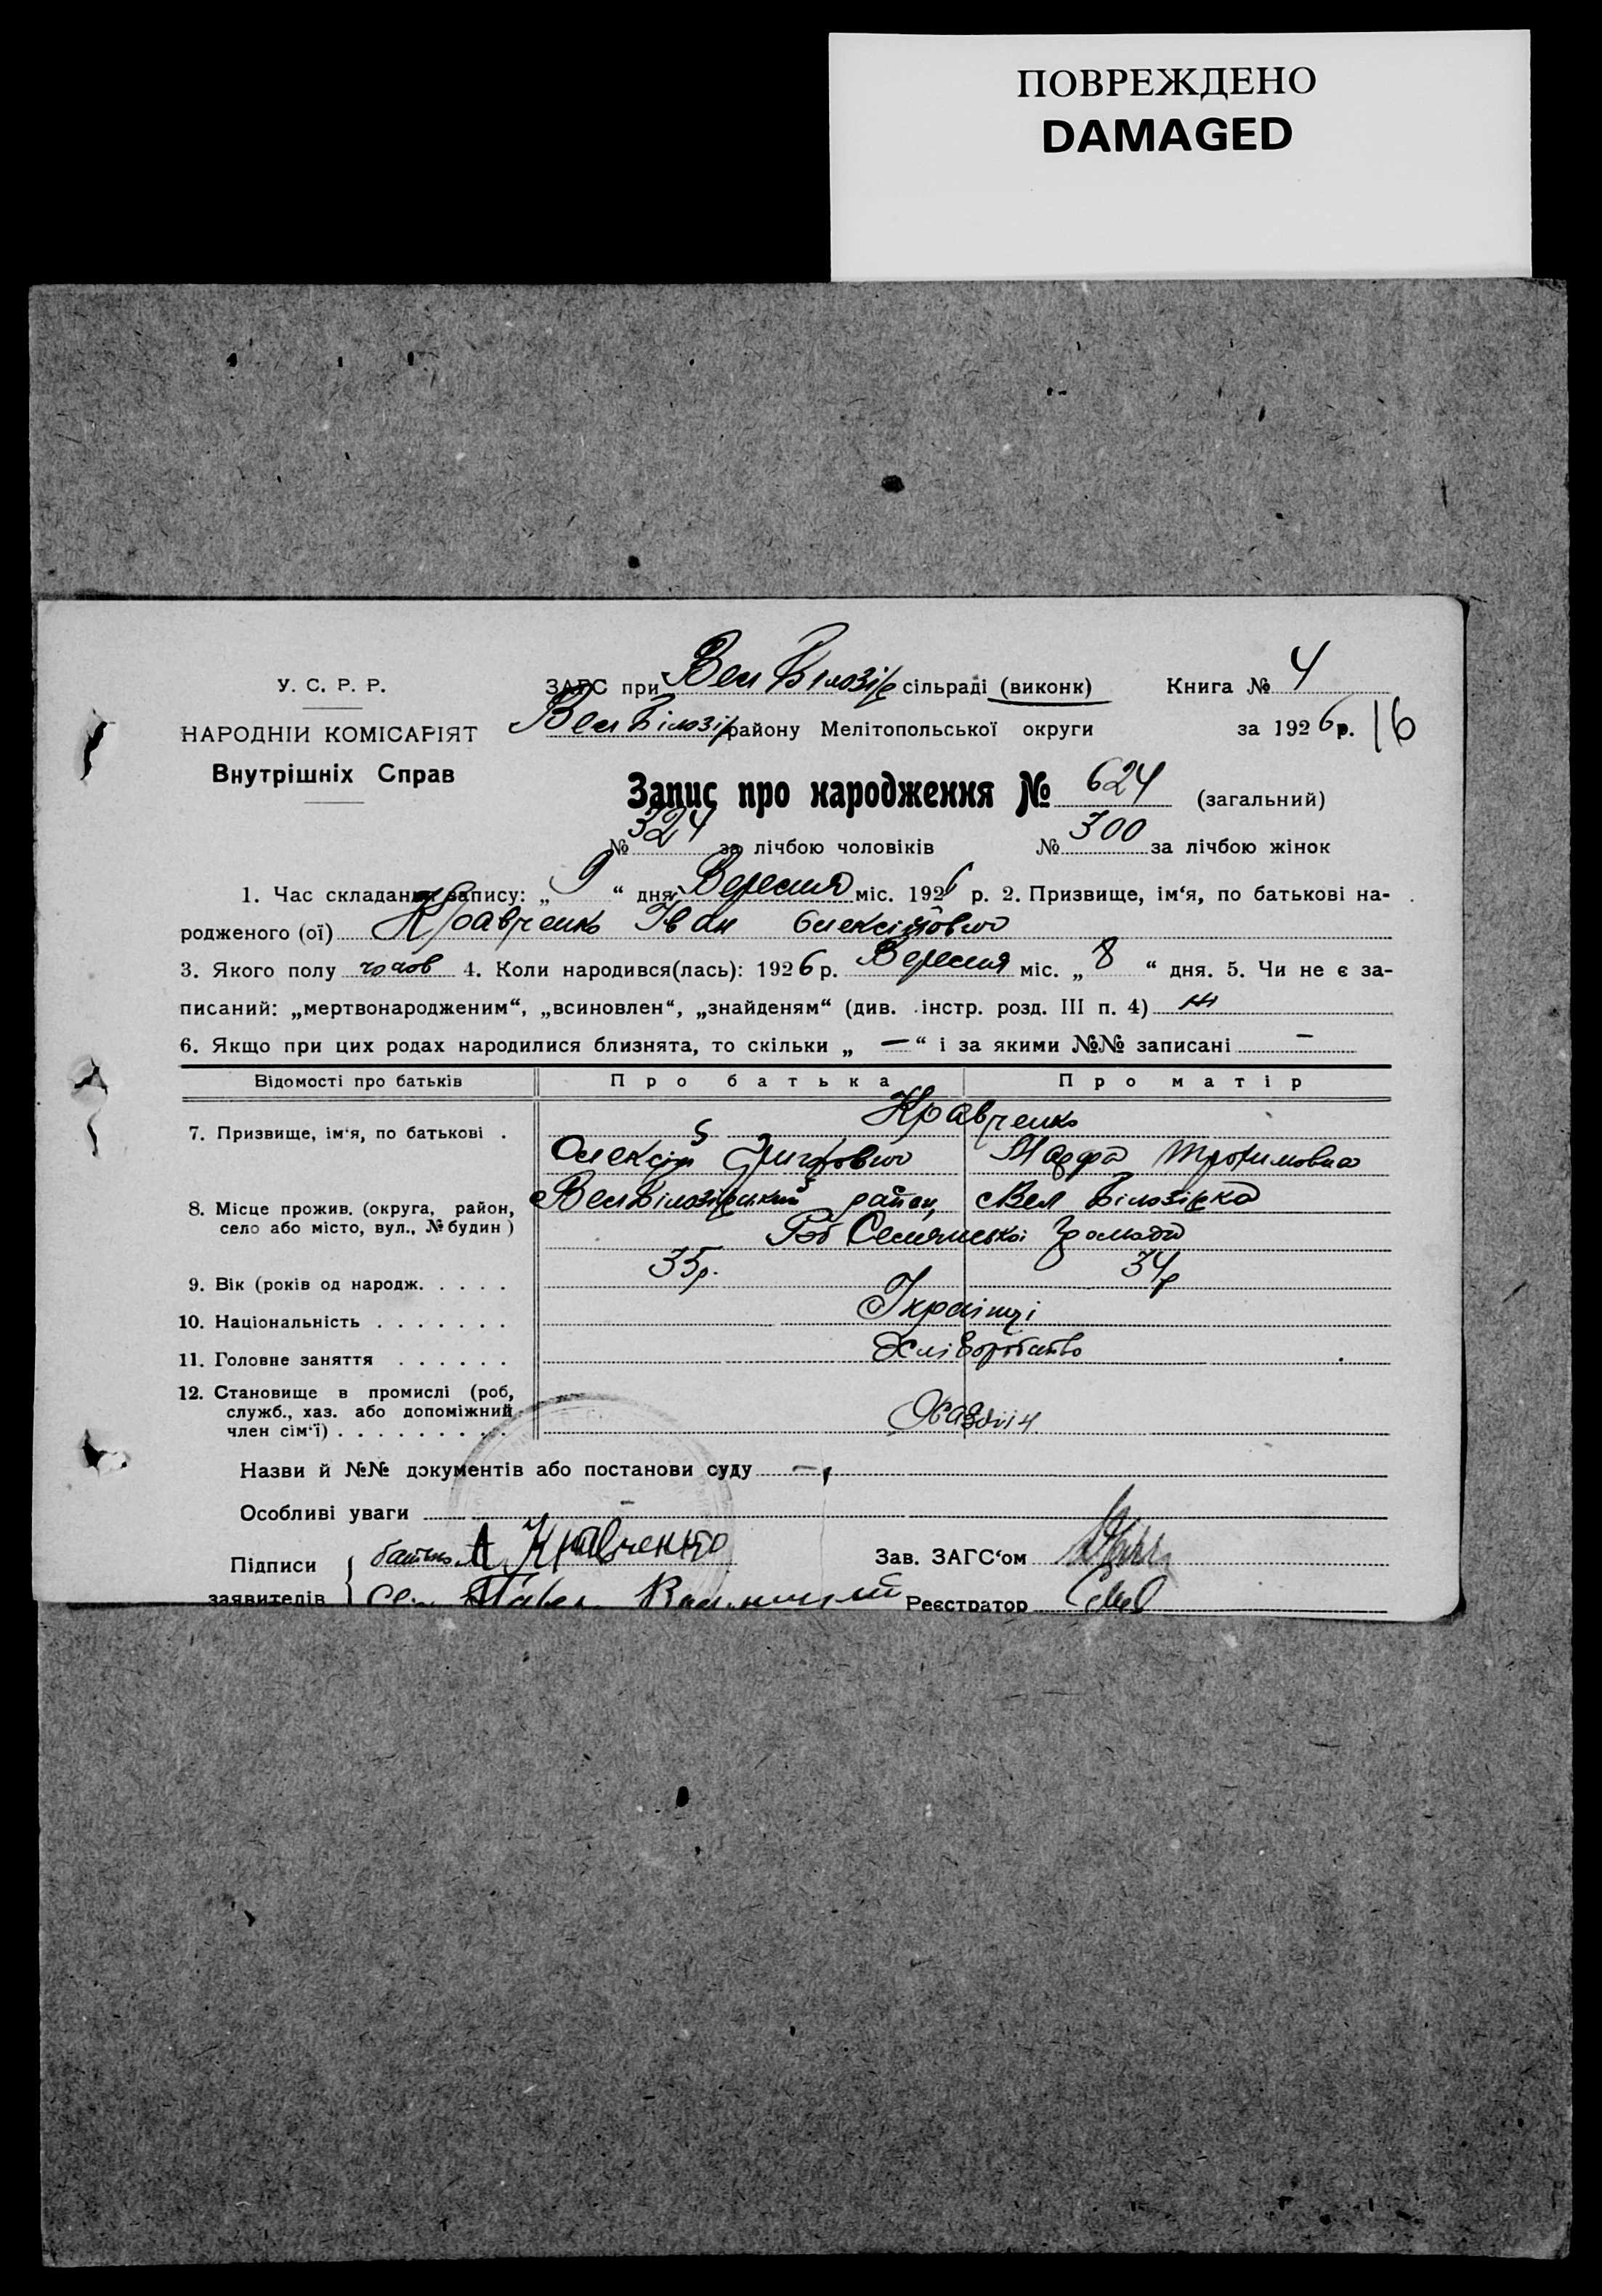 ПОВРЕЖДЕНО
DAMAGED
У. С. Р. Р.
НАРОДНІЙ КОМІСАРІЯТ
Внутрішніх Справ
ЗАГС при Вел Білозір сільраді (виконк)
Книга № 4
Вел Білозір району Мелітопольської округи
за 1926 р. 16
Запис про народження № 624 (загальний)
№ 324 за лічбою чоловіків № 300 за лічбою жінок
1. Час складання запису: „ 9 “ дня Вересня міс. 1926 р. 2. Призвище, ім‘я, по батькові на-
родженого (ої) Кравченко Іван Олексійович
3. Якого полу чолов 4. Коли народився(лась): 1926 р. Вересня міс. „ 8 “ дня. 5. Чи не є за-
писаний: „мертвонародженим“, „всиновлен“, „знайденям“ (див. інстр. розд. III п. 4) ні
6. Якщо при цих родах народилися близнята, то скільки „ — “ і за якими №№ записані —
Відомості про батьків Про батька Про матір
7. Призвище, ім‘я, по батькові . Кравченко
Олексій Марфа Трохимовна
8. Місце прожив. (округа, район, село або місто, вул., № будин ) ВелБілозірський район, с Вел Білозірка
Семянської Громади
9. Вік (років од народж. . . . . 35р. 34р
10. Національність . . . . . . . Українці
11. Головне заняття . . . . . . Хліборобство
12. Становище в промислі (роб,
служб., хаз. або допоміжний
член сім‘ї) . . . . . . . . .
Назви й №№ документів або постанови суду —
Особливі уваги —
Підписи батько А Кравченко Зав. ЗАГС‘ом
заявителів Реєстратор